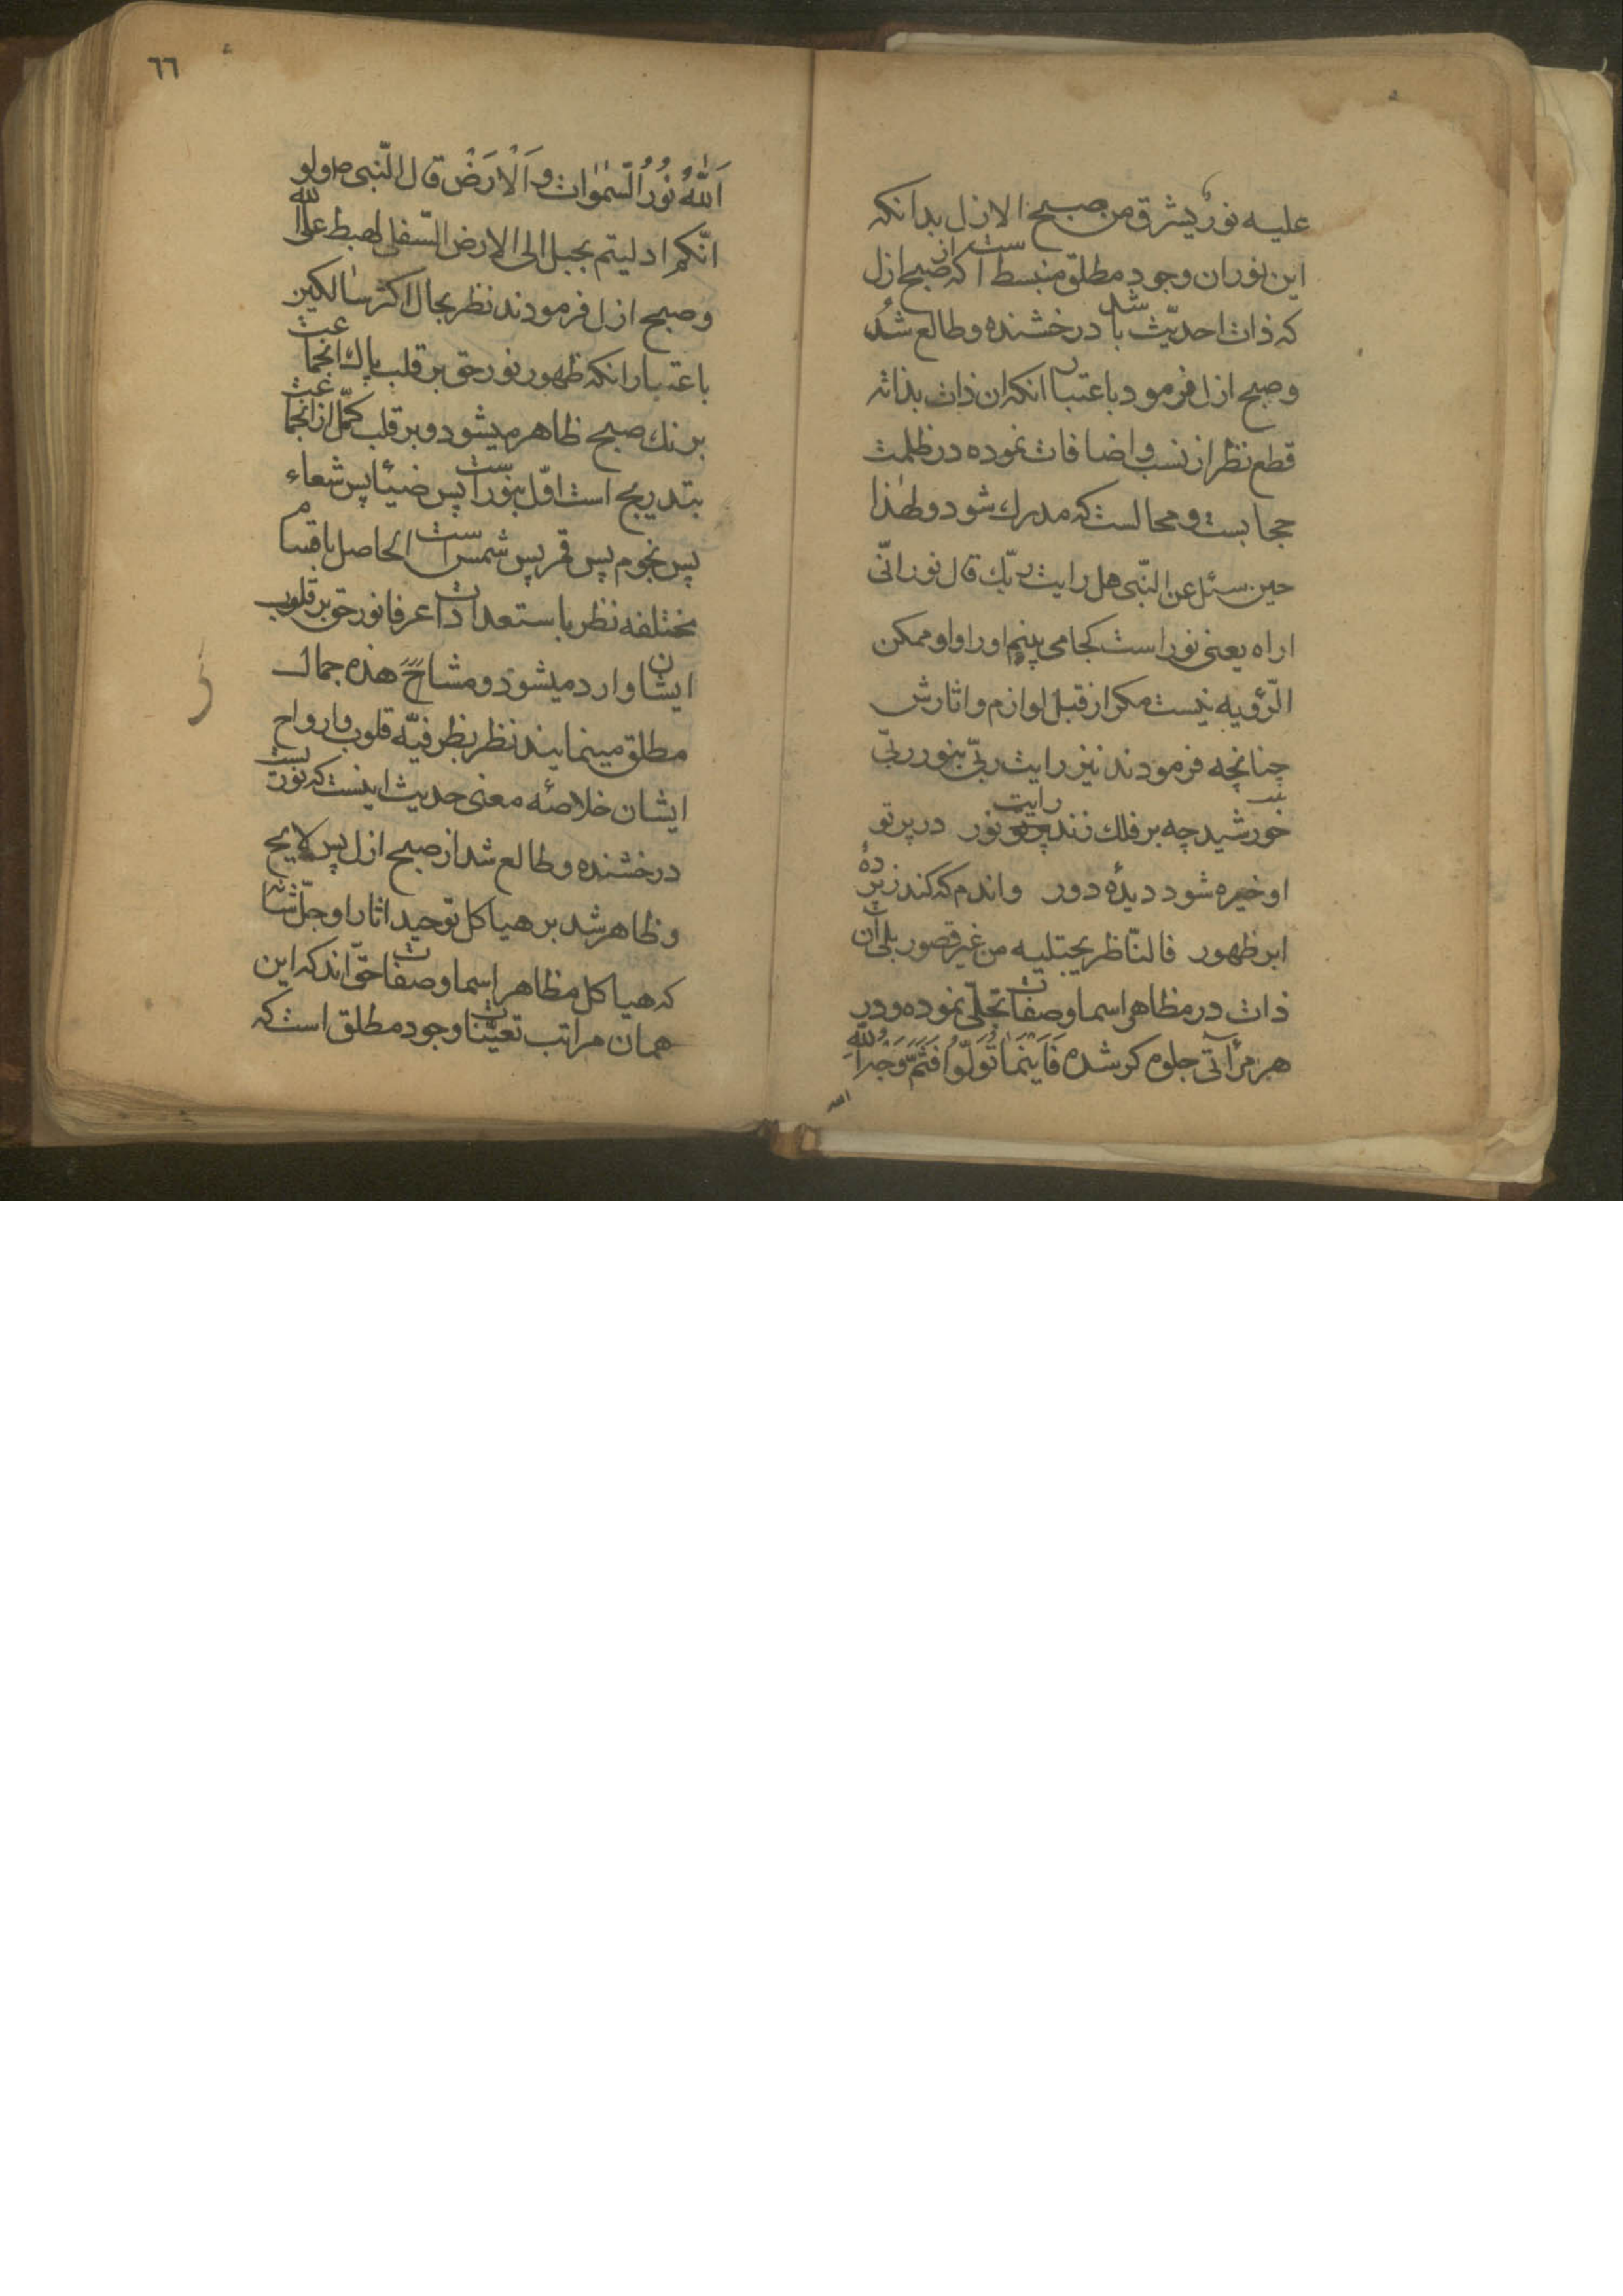 علیه نور یشرق من صبح الازل بدانکه
این نور ان وجود مطلق منبسط است که از صبح ازل
که ذات احدیّت باشد درخشنده و طالع شد
و صبح ازل فرمود باعتبار انکه ان ذات بذاته
قطع نظر از نسب و اضافات نموده در ظلمت
حجابست و محالست که مدرک شود و لهذا
حین سئل عن النّبی هل رایت ربّک قال نور انّی
اراه یعنی نور است کجا می بینم او را و او ممکن
الرّؤیه نیست مکر از قبل لوازم و اثارش
چنانچه فرمودند نیز رایت ربّی بنور ربّی
خورشید چه بر فلک زند رایت نور در پرتو
او خیره شود دیدهٔ دور واندم که کند ز پردهٔ
ابر ظهور فالنّاظر یجتلیه من غیر قصور بلی آن
ذات در مظاهر اسما و صفات تجلّی نموده و در
هر مرآتی جلوه کر شده فَاَیْنَمٰا تُوَلّوُا فَثَمَّ وَجْهُ اللّٰهِ
الله
٦٦
اَللّٰهُ نُورُ السَّمٰوٰاتِ وَ اَلْاَرَضْ قال النّبی ص و لو
انّکم ادلیتم بحبل الی الارض السّفلی لهبط علی الله
و صبح ازل فرمودند نظر بحال اکثر سالکین
باعتبار انکه ظهور نور حق بر قلب پاک انجماعت
برنک صبح ظاهر میشود و بر قلب کمّل از انجماعت
بتدریج است اوّل بنور است پس ضیٔا پس شعاء
پس نجوم پس قمر پس شمس است الحاصل باقسام
مختلفه نظر باستعدادات عرفا نور حق بر قلوب
ایشان وارد میشود و مشاح هذه جمال
مطلق مینمایند نظر بظرفیّه قلوب و ارواح
ایشان خلاصهٔ معنی حدیث اینست که نوریست
درخشنده و طالع شد از صبح ازل پس لایح
و ظاهر شد بر هیاکل توحید اثار او جلّ شانه
که هیاکل مظاهر اسما و صفات حقّ اند که این
همان مراتب تعیّنات وجود مطلق است که